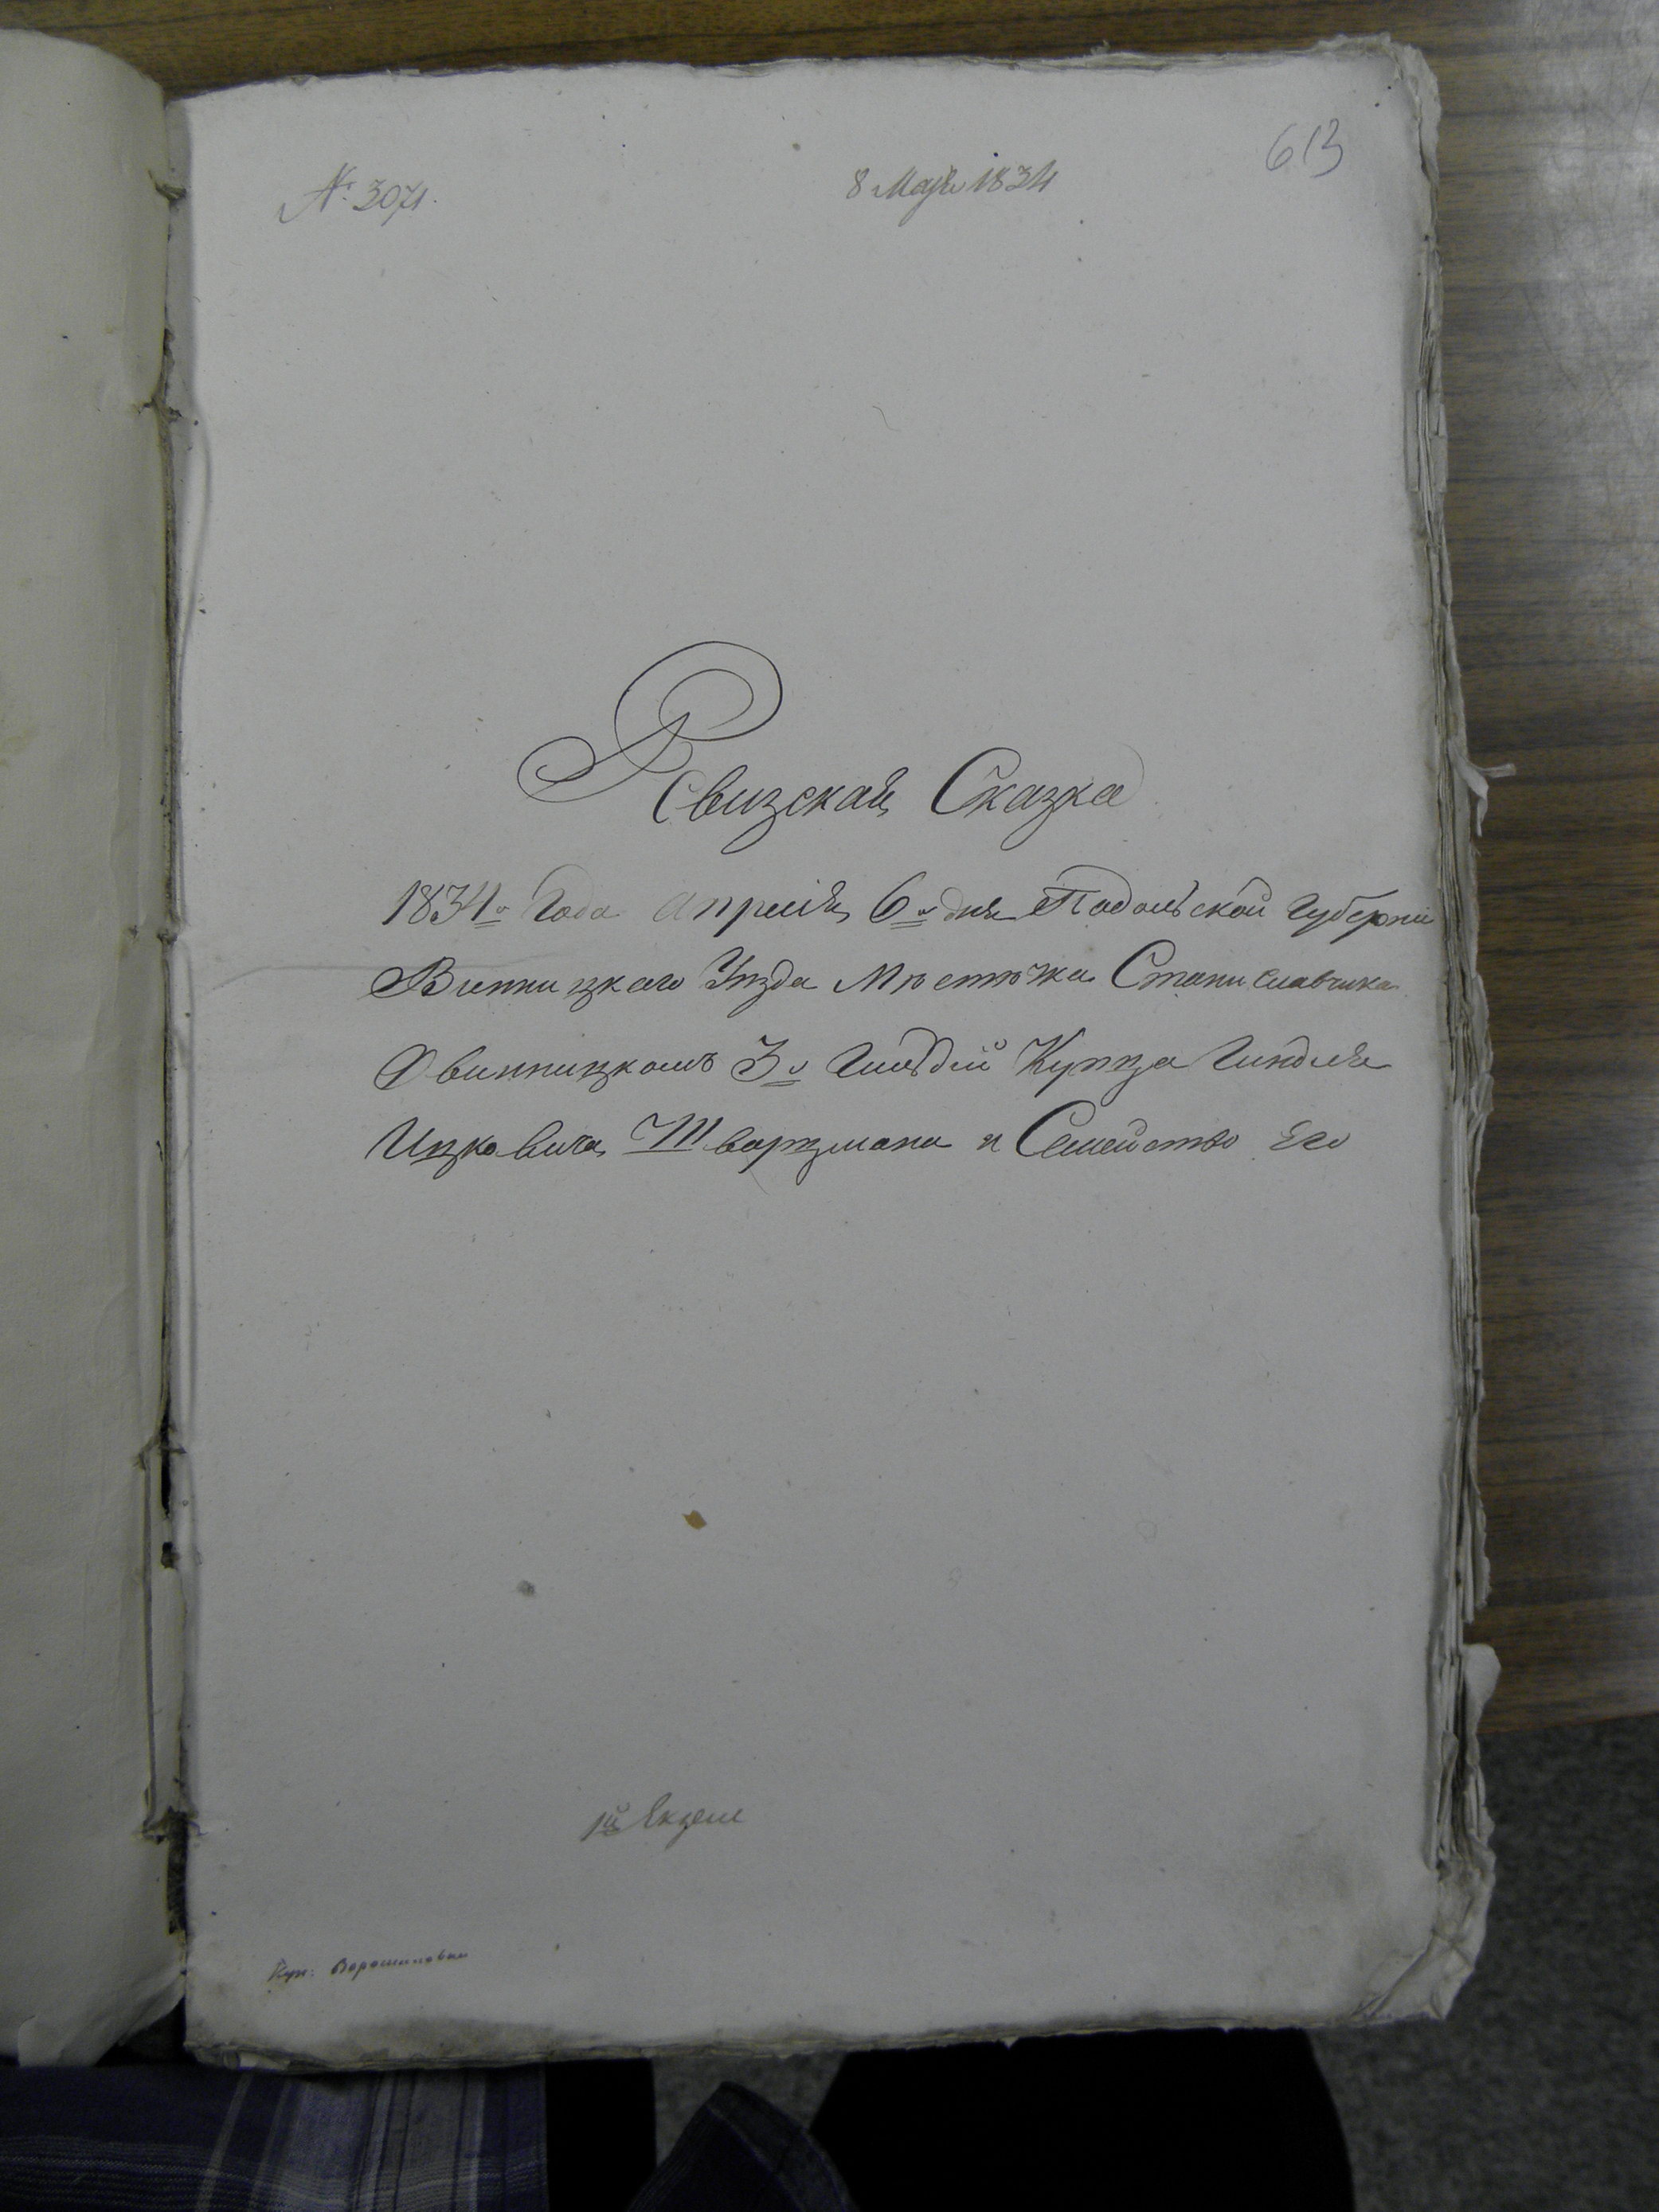 № 3071.
8 Мая 1834
613
Ревизская Сказка
1834го Года Апреля 6го дня Подольской Губернии
Винницкого Уѣзда Мѣстѣчка Станиславчика
О винницкомъ 3й Гильдій Купца Гиндля
Ицковича Шварцмана и Семейство Его
1й Екзем